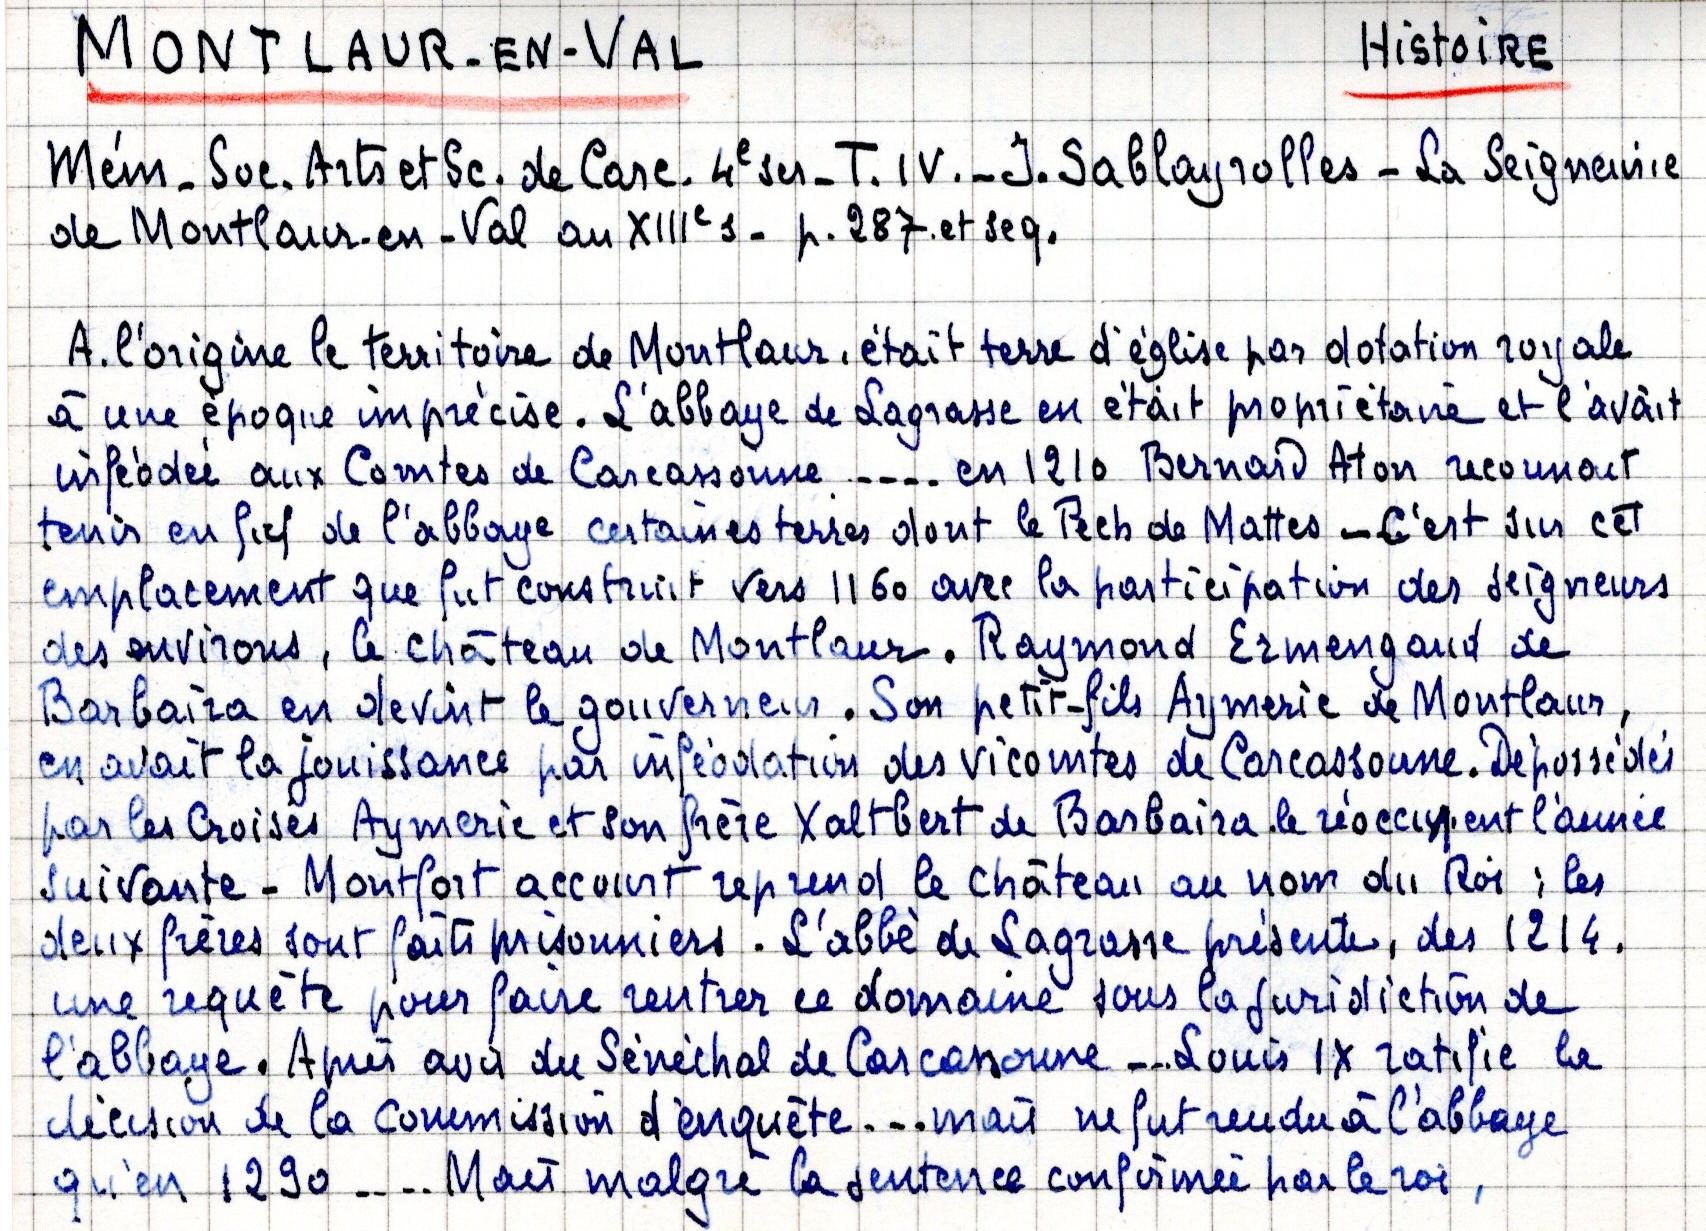 MONTLAUR-EN-VAL Histoire
Mém - Soc. Arts et Sc. de Carc. 4e ser - T. IV. - J. Sablayrolles - La Seigneurie
de Montlaur-en-Val au XIIIe s - p. 287. et seq.
A l'origine le territoire de Montlaur, était terre d'église par dotation royale
à une époque imprécise. L'abbaye de Lagrasse en était propriétaire et l'avait
inféodée aux Comtes de Carcassonne .---- en 1210 Bernard Aton reconnait
tenir en fief de l'abbaye certaines terres dont le Pech de Mattes - C'est sur cet
emplacement que fut construit vers 1160 avec la participation des seigneurs
des environs, le château de Montlaur. Raymond Ermengaud de
Barbaira en devint le gouverneur. Son petit-fils Aymeric de Montlaur,
en avait la jouissance par inféodation des vicomtes de Carcassonne. Dépossédés
par les Croisés Aymeric et son frère Xaltbert de Barbaira le réoccupent l'année
suivante - Montfort accourt reprend le château au nom du Roi ; les
deux frères sont faits prisonniers. L'abbé de Lagrasse présente, des 1214,
une requête pour faire rentrer ce domaine sous la juridiction de
l'abbaye. Après avis du Sénéchal de Carcassonne --- Louis IX ratifie la
décision de la Commission d'enquête --- mais ne fut rendu à l'abbaye
qu'en 1290 ---- Mais malgré la sentence confirmée par le roi,